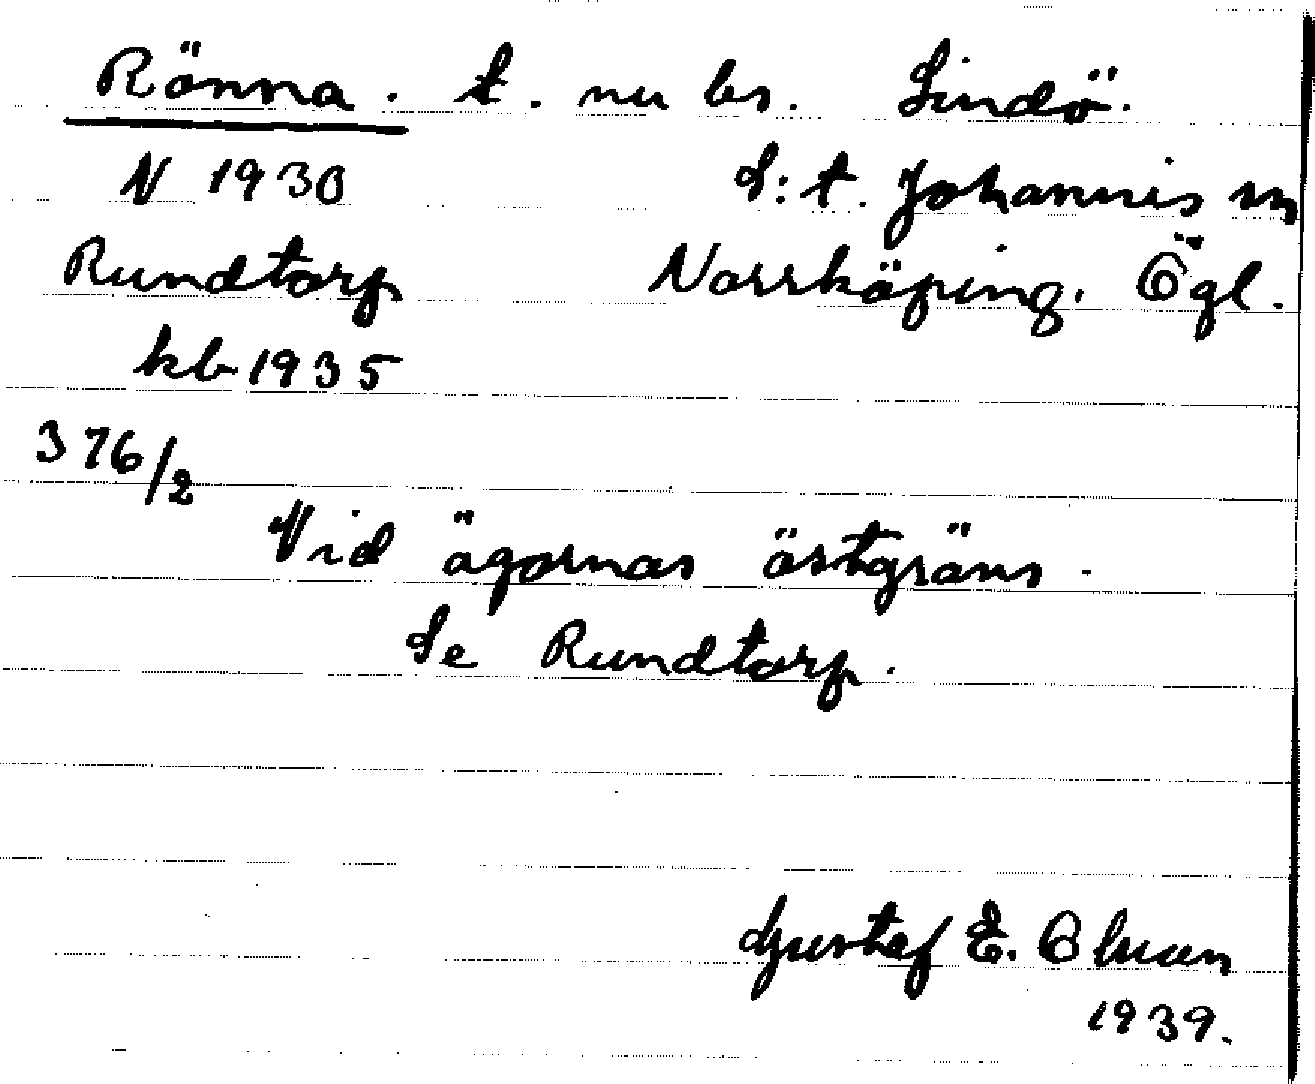 Rönna. t. nu ls. Lindö.
N 1930 S:t. Johannis sn
Rundtorp Norrköping. Ögl.
kb 1935
376/2
Vid ägornas östgräns.
Se Rundtorp.
Gustaf E. Olman
1939.